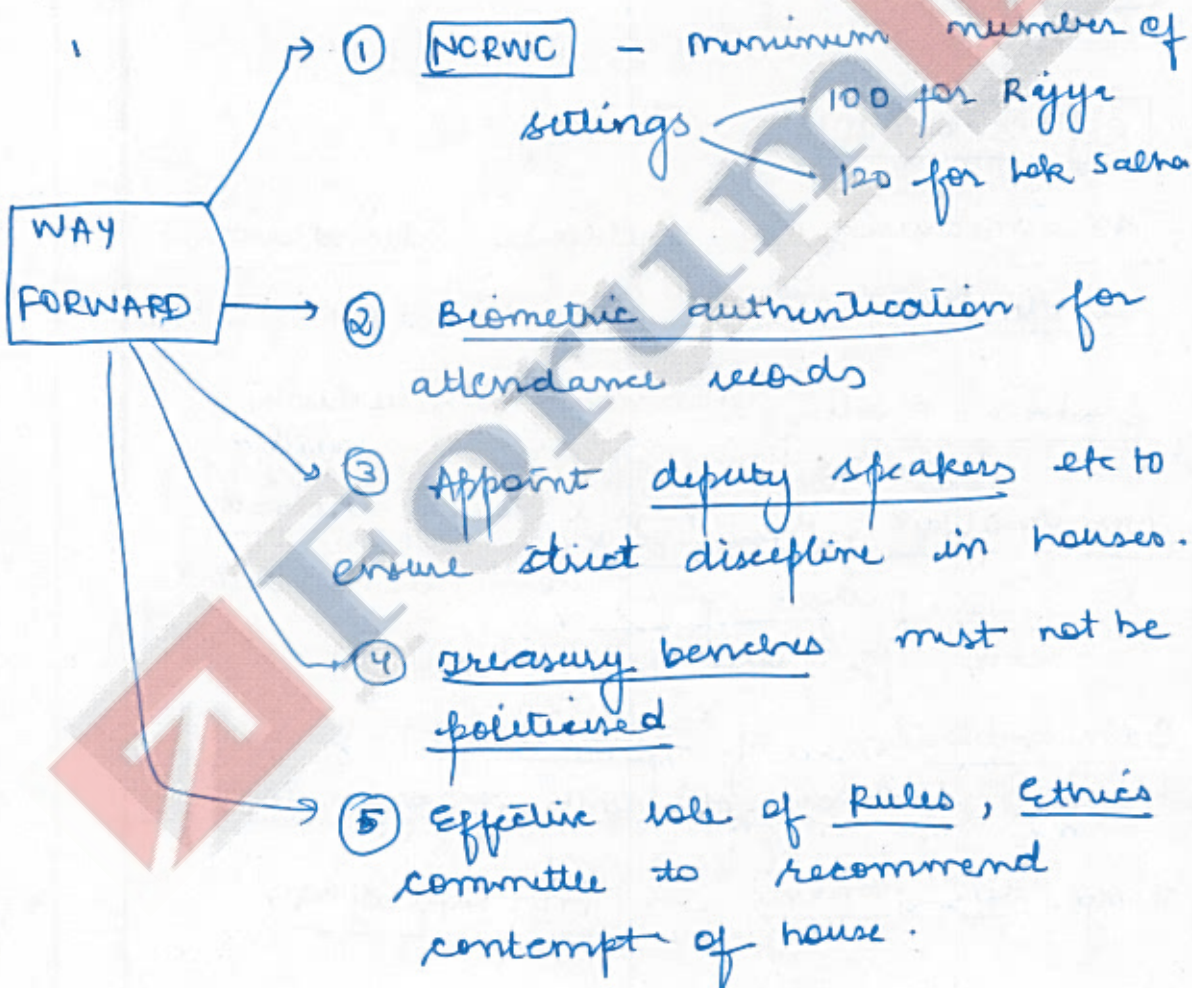 ① NCRWC – minimum number of
sittings
100 for Rajya
120 for Lok Sabha
WAY
FORWARD
② Biometric authentication for
attendance records
③ Appoint deputy speakers etc to
ensure strict discipline in houses.
④ Treasury benches must not be
politicised
⑤ Effective role of Rules, Ethics
committee to recommend
contempt of house.
Forum